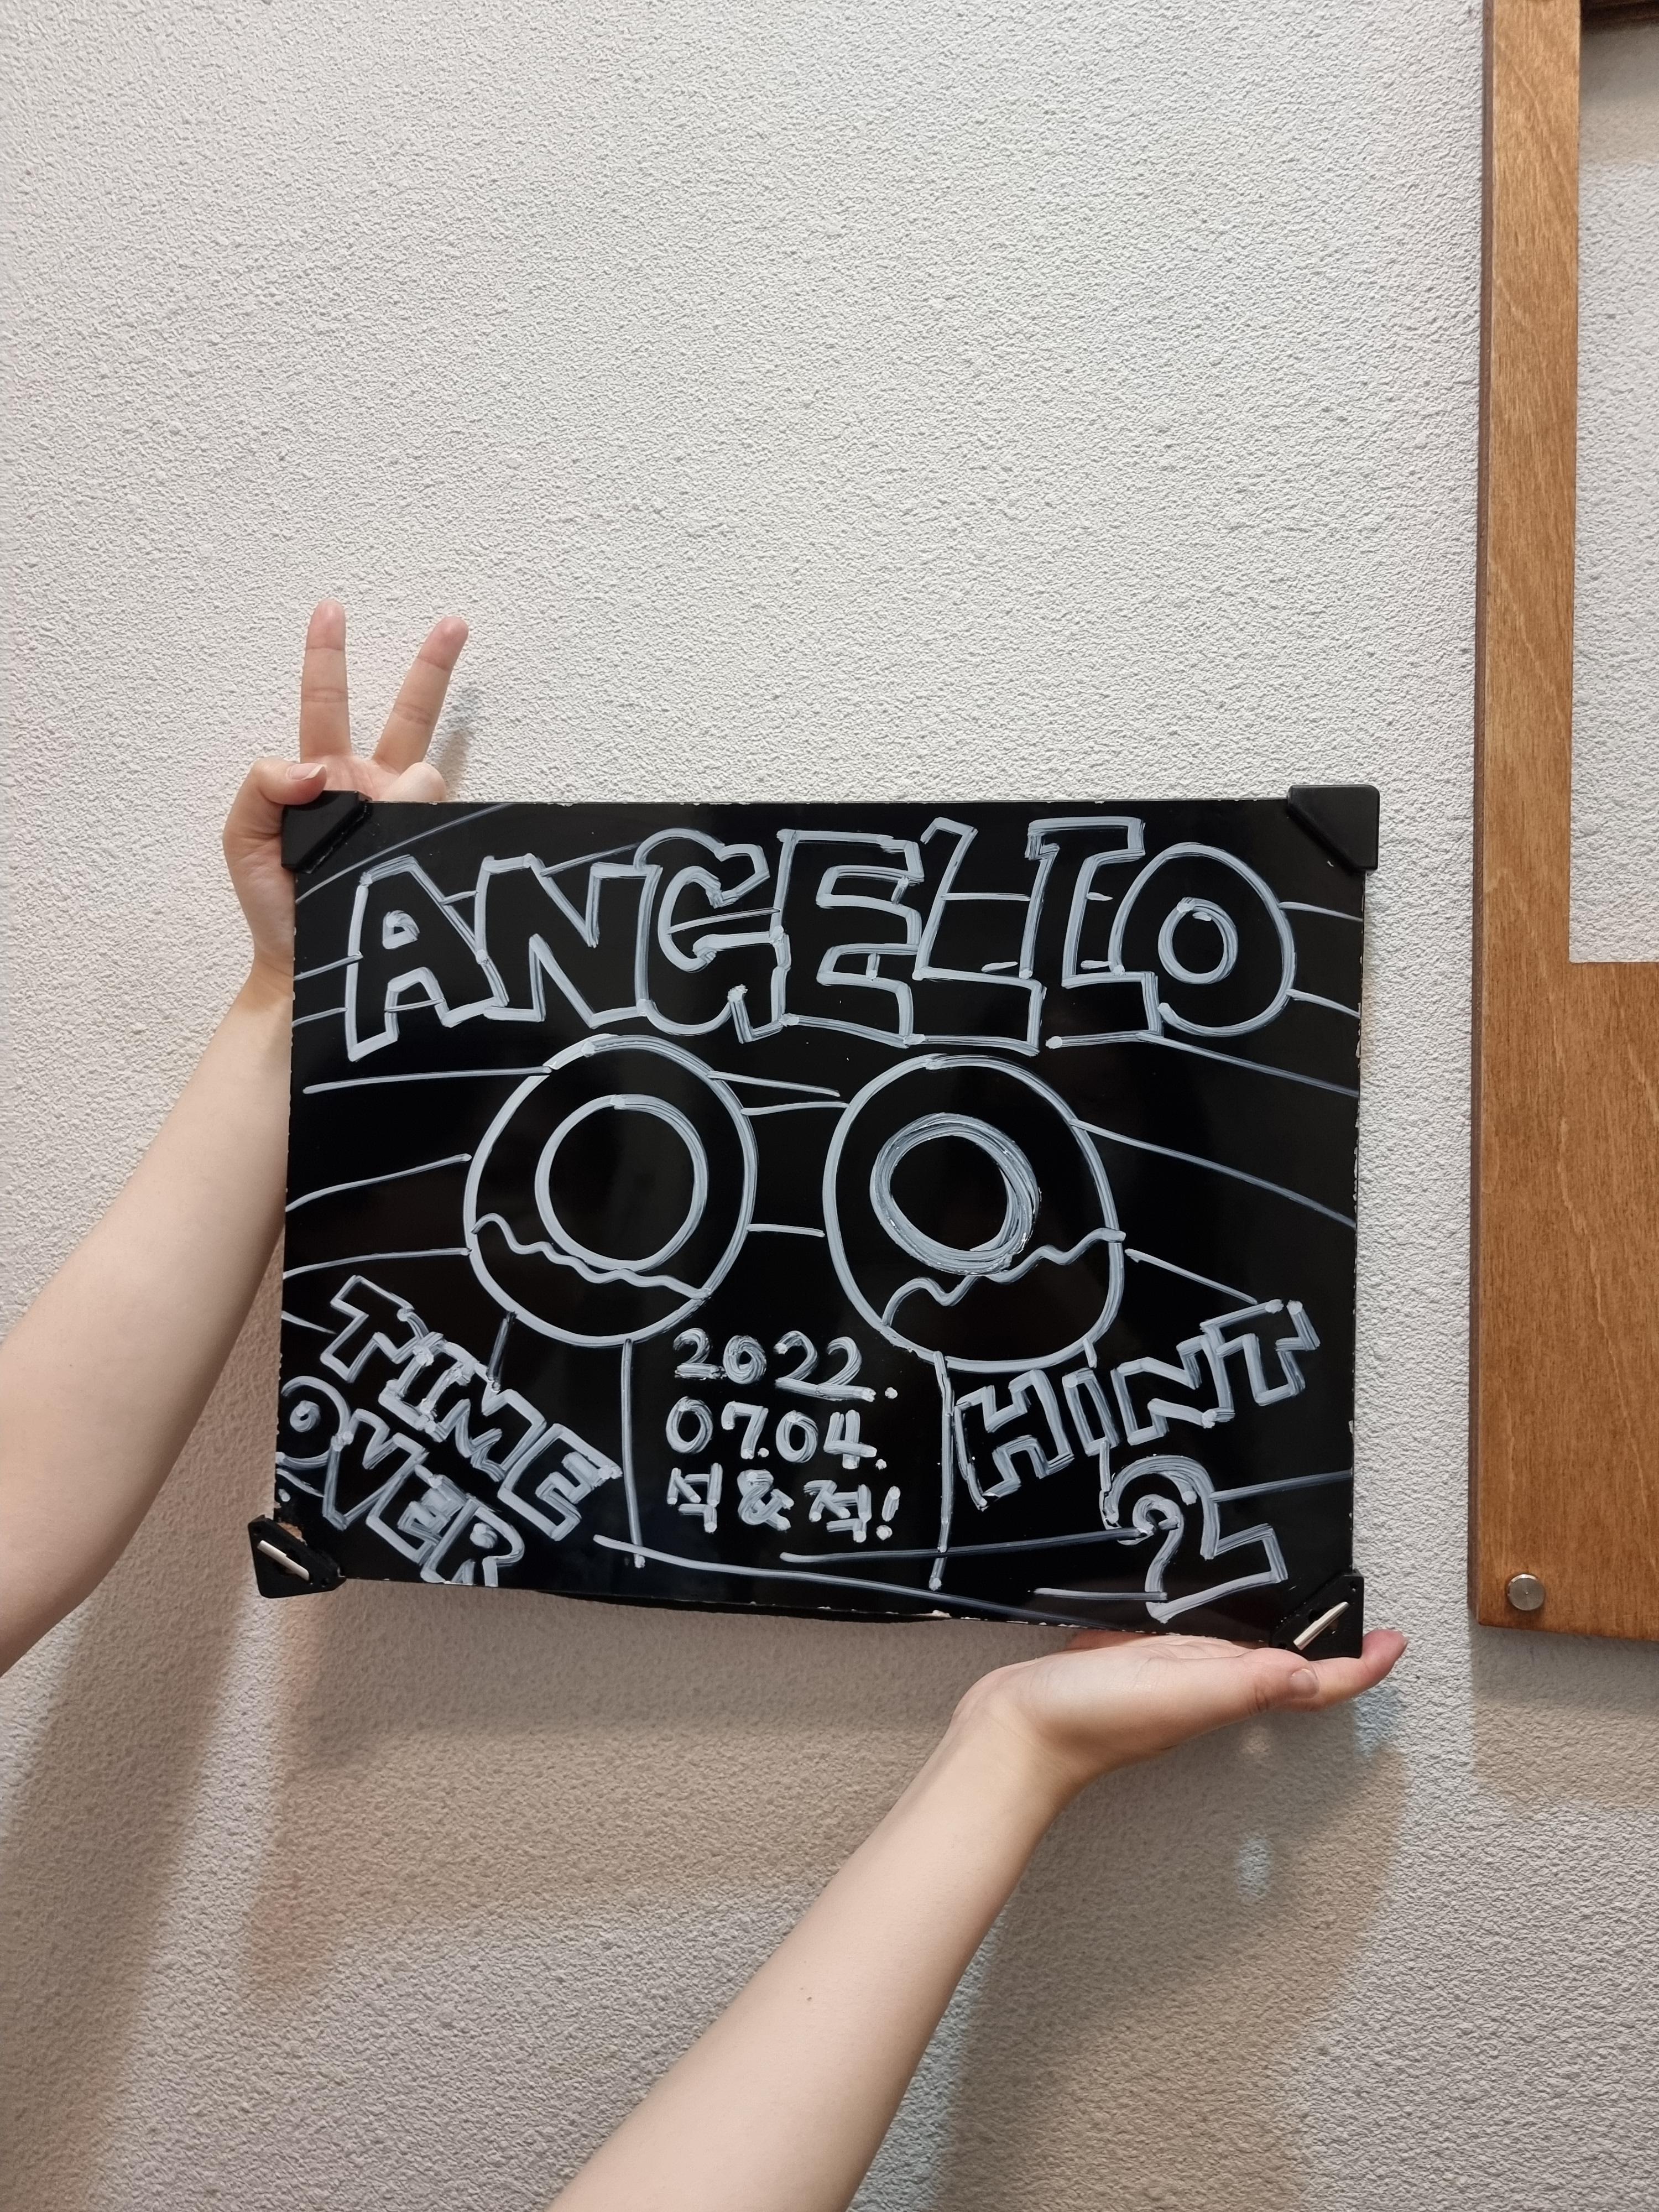 ANGELLO
TIME
OVER
2022.
07.04.
직&적!
HINT
2